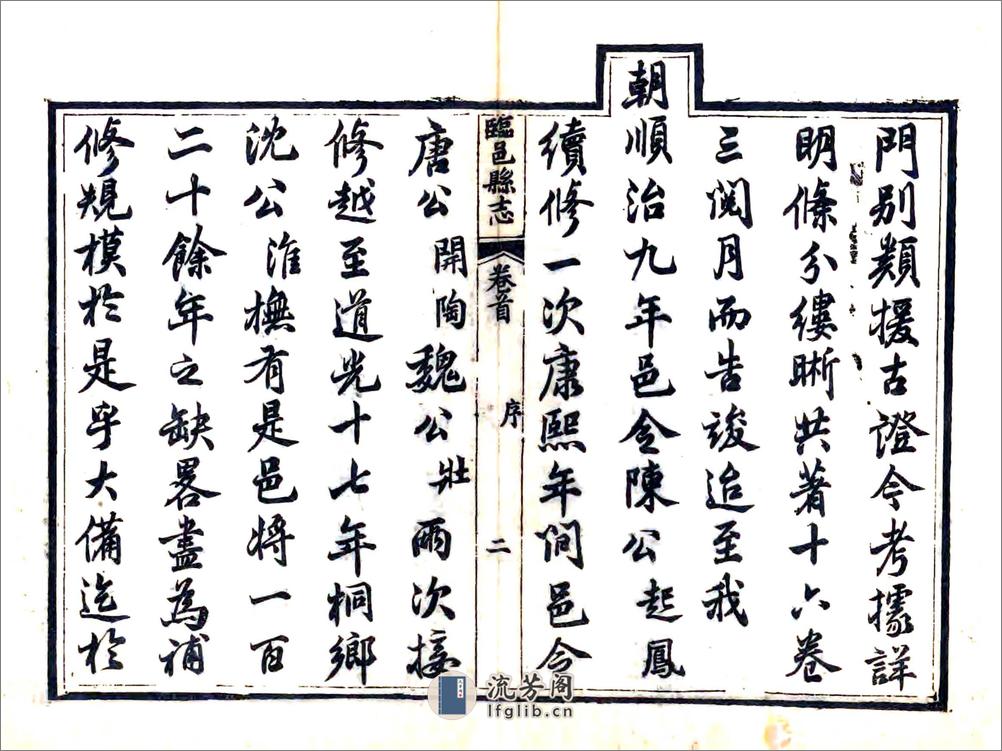 門别類援古證今考據詳
明條分縷晰共著十六卷
三閱月而告竣迨至我
朝順治九年邑令陳公起鳳
續修一次康熙年间邑令
臨邑縣志 卷首 序 二
唐公開陶魏公壯兩次接
修越至道光十七年桐鄉
沈公淮撫有是邑将一百
二十餘年之缺畧盡為補
修規模於是乎大備迄於
流芳阁
lfglib.cn